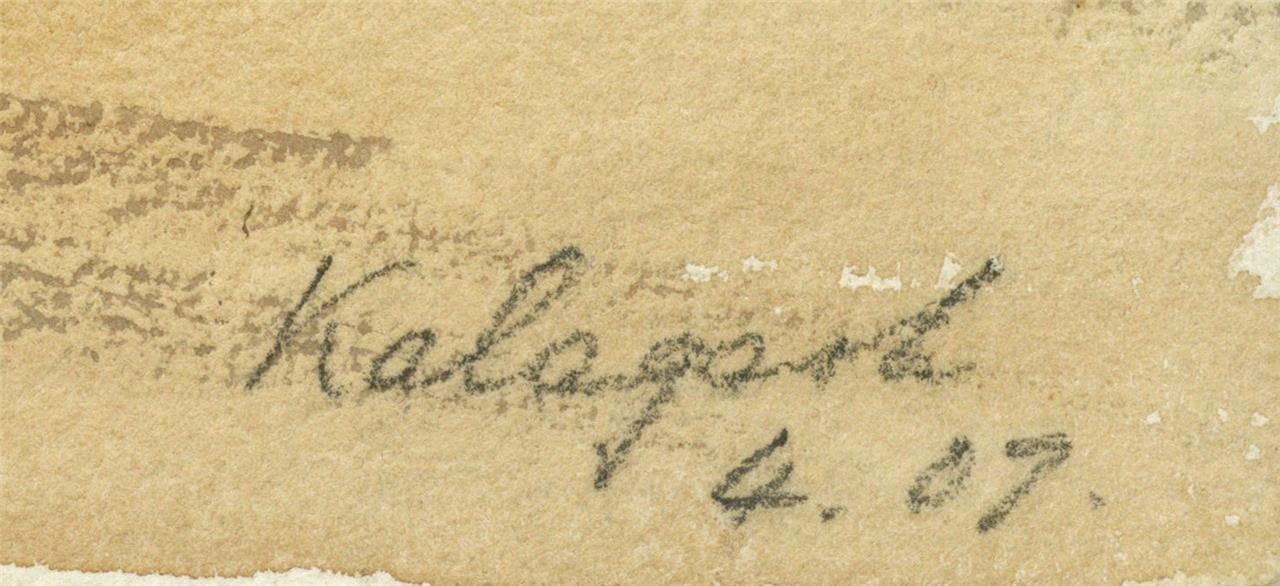 Kalagarh
4. 07.